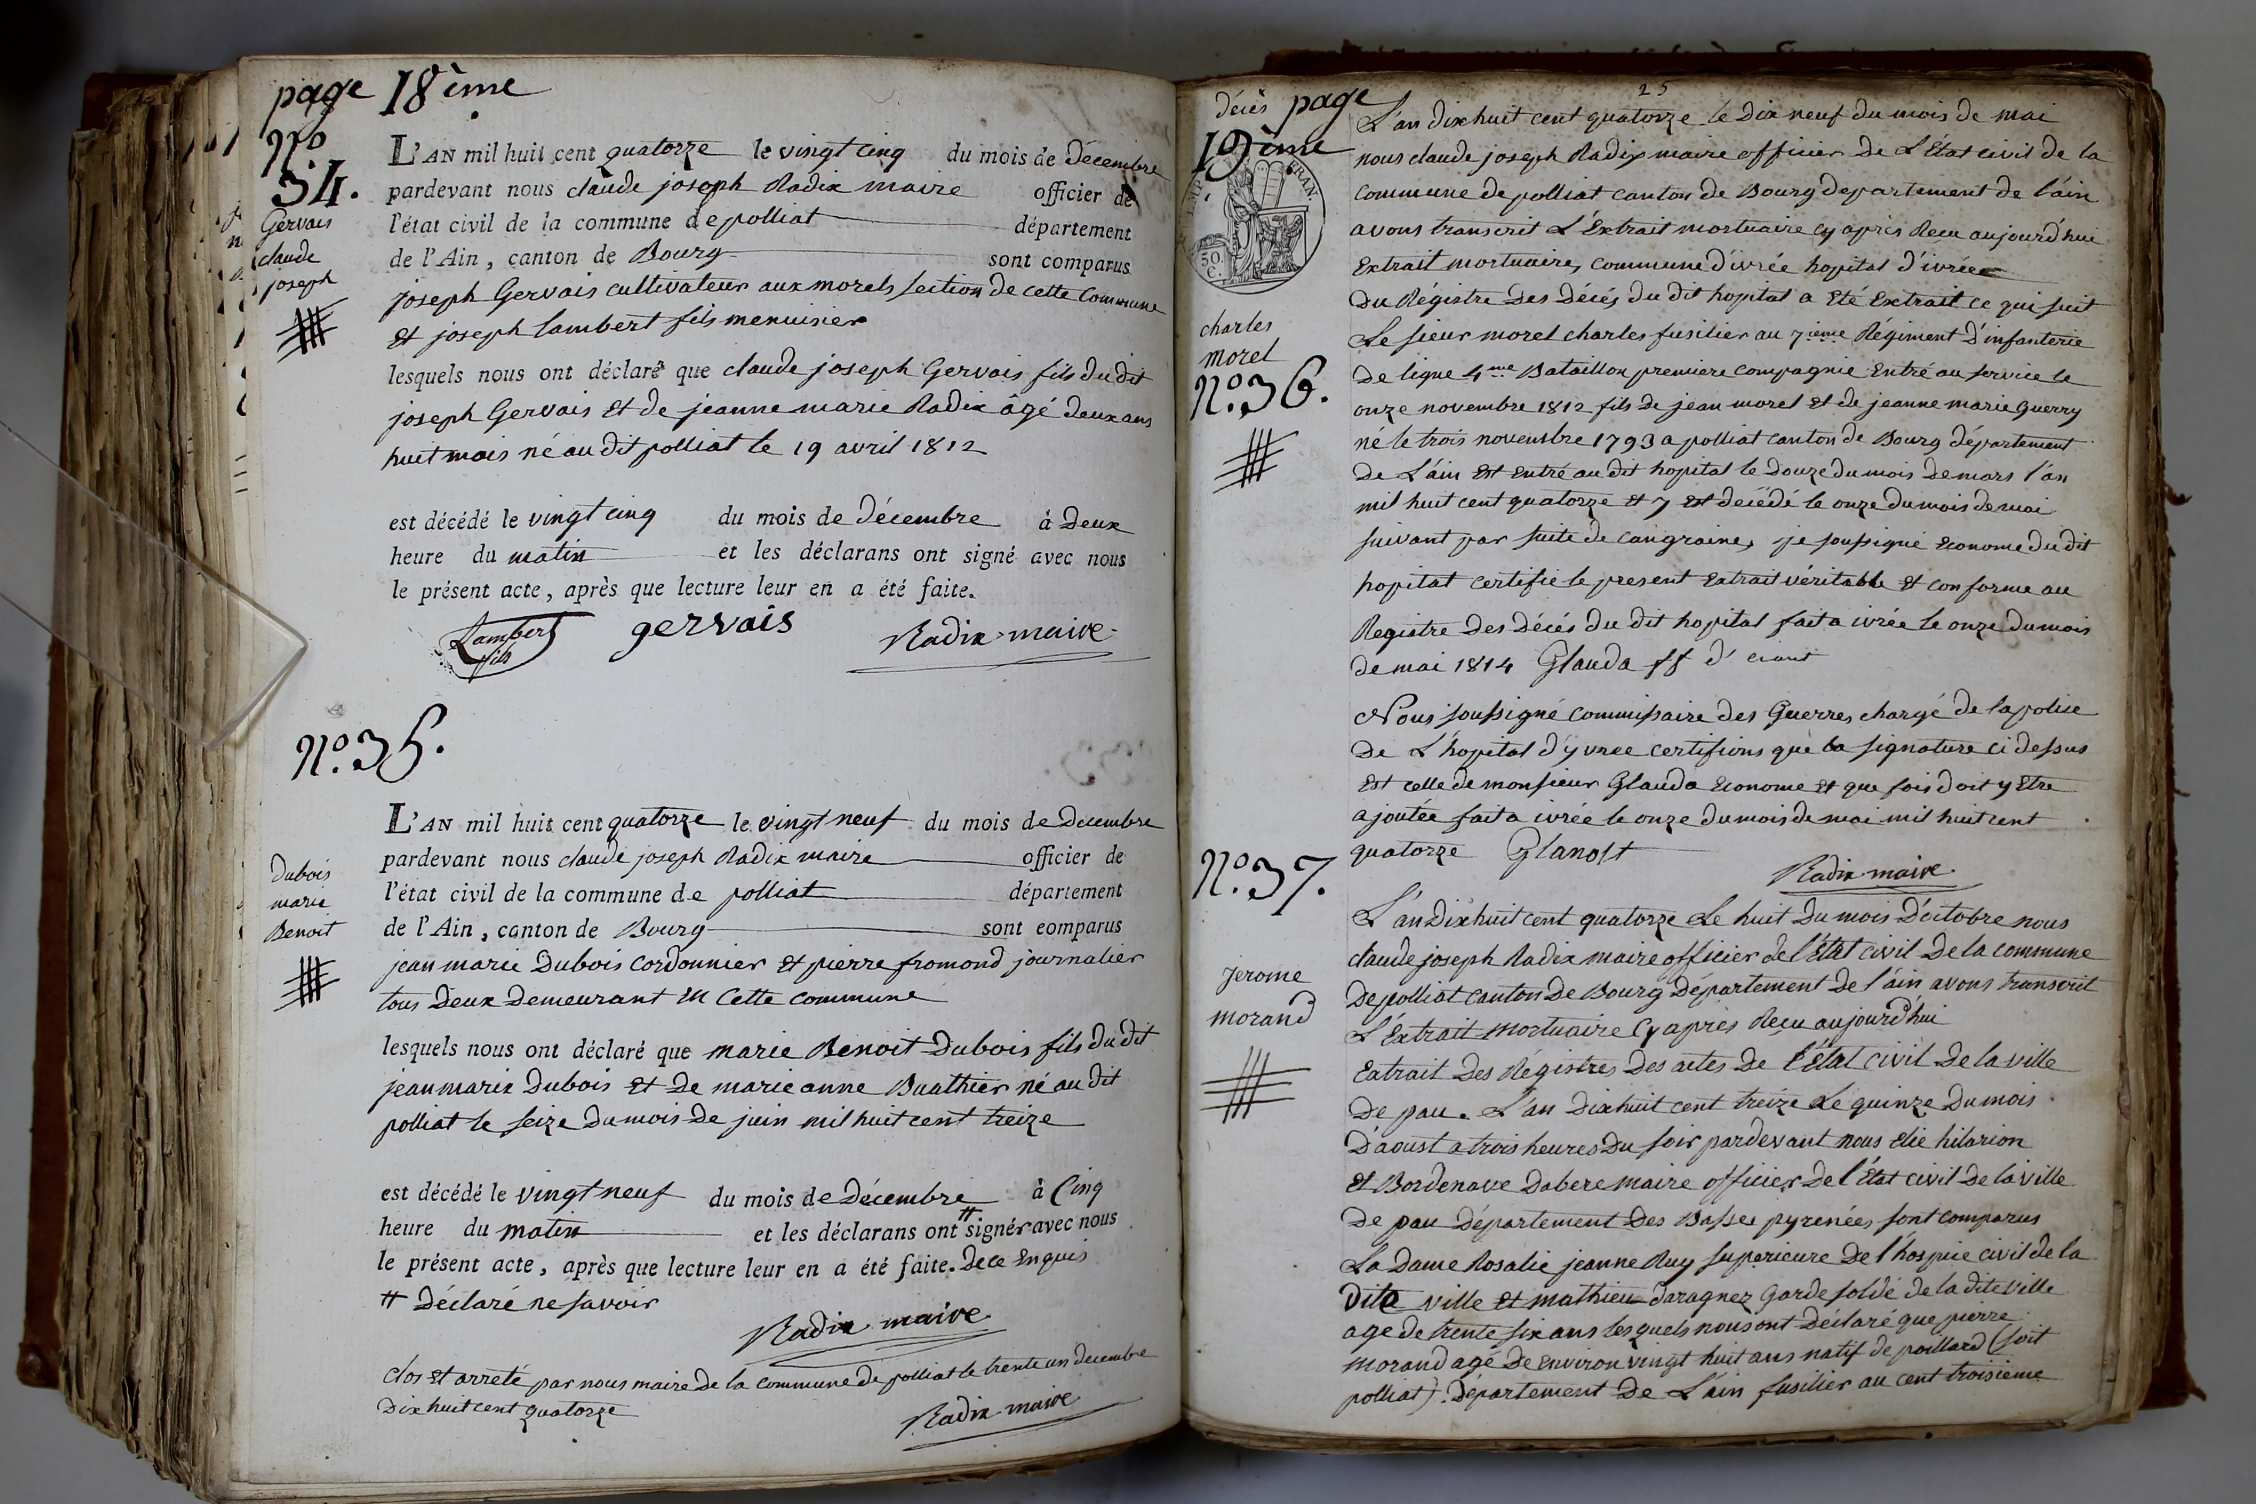 page 18ème
N.o 34.
Gervais
claude
joseph
L'AN mil huit cent quatorze le vingt cinq du mois de décembre
pardevant nous claude joseph Radix maire officier de
l'état civil de la commune de polliat département
de l'Ain, canton de Bourg sont comparus
joseph Gervais cultivateur aux morels section de cette commune
Et joseph lambert fils menuisier
lesquels nous ont déclaré que claude joseph Gervais fils du dit
joseph Gervais Et de jeanne marie Radix âgé deux ans
huit mois né au dit polliat le 19 avril 1812
est décédé le vingt cinq du mois de décembre à deux
heure du matin et les déclarans ont signé avec nous
le présent acte, après que lecture leur en a été faite.
Lambert fils gervais Radix maire
N.o 35.
Dubois
marie
Benoit
L'AN mil huit cent quatorze le vingt neuf du mois de decembre
pardevant nous claude joseph Radix maire officier de
l'état civil de la commune de polliat département
de l'Ain, canton de Bourg sont comparus
jean marie Dubois cordonnier Et pierre fromond journalier
tous deux demeurant en cette commune
lesquels nous ont déclaré que marie Benoit Dubois fils du dit
jean marie Dubois Et de marie anne Buathier né au dit
polliat le seize du mois de juin mil huit cent treize
est décédé le vingt neuf du mois de décembre à Cinq
heure du matin et les déclarans ont # signér avec nous
le présent acte, après que lecture leur en a été faite. de ce Enquis
# déclaré ne savoir
Radix maire
clos Et arreté par nous maire de la commune de polliat le trente un decembre
dix huit cent quatorze
Radix maire
25
décès page
19ème
EMP. FRAN.
50
C.
charles
morel
N.o 36.
L'an dix huit cent quatorze le dix neuf du mois de mai
nous claude joseph Radix maire officier de L'État civil de la
commune de polliat canton de Bourg departement de l'ain
avons transcrit L'Extrait mortuaire cy après Reçu aujourd'hui
Extrait mortuaire, commune d'ivrée hopital d'ivrée
du Régistre des Décés du dit hopital a Eté Extrait ce qui suit
Le sieur morel charles fusilier au 7ieme Régiment d'infanterie
de ligne 4me Bataillon premiere compagnie Entré au service le
onze novembre 1812 fils de jean morel Et de jeanne marie Guerry
né le trois novembre 1793 a polliat canton de Bourg département
de L'ain Est Entré au dit hopital le douze du mois de mars l'an
mil huit cent quatorze Et y Est décédé le onze du mois de mai
suivant par suite de cangraine, je soussigné Econome du dit
hopital certifie le present Extrait véritable Et conforme au
Registre des Décés du dit hopital fait a ivrée le onze du mois
de mai 1814 Glauda ff d'
Nous soussigné commissaire des Guerres chargé de la police
de L'hopital d'yvree certifions que la signature ci dessus
Est celle de monsieur Glauda Econome Et que fois doit y Etre
ajoutée fait a ivrée le onze du mois de mai mil huit cent
quatorze Glanost
Radix maire
N.o 37.
jerome
morand
L'an dix huit cent quatorze Le huit du mois d'octobre nous
claude joseph Radix maire officier de l'État civil de la commune
de polliat canton de Bourg département de l'ain avons transcrit
L'Extrait mortuaire cy après Reçu aujourd'hui
Extrait des Régistres des actes de l'état civil de la ville
de pau. L'an dix huit cent treize Le quinze du mois
d'aoust a trois heures du soir pardevant nous Elie hilarion
Et Bordenave dabere maire officier de l'État civil de la ville
de pau département des Basses pyrenées sont comparus
La dame Rosalie jeanne Ruy superieure de l'hospice civil de la
dite ville Et mathieu daragnez Garde soldé de la dite ville
age de trente six ans lesquels nous ont déclaré que pierre
morand agé de environ vingt huit ans natif de poillard (soit
polliat). Département de L'ain fusilier au cent troisieme